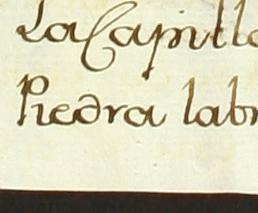 La Capill
Piedra lab